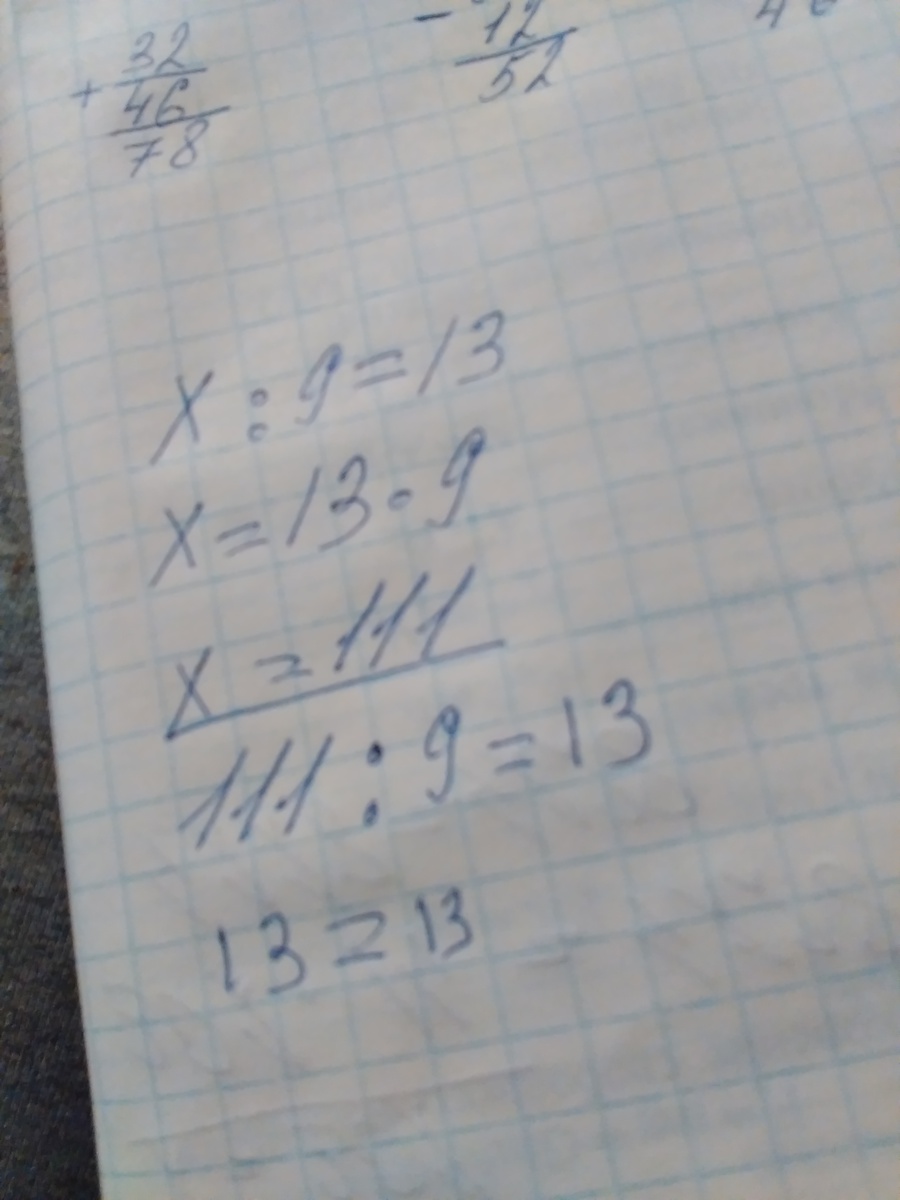 32
+
46
78
- 12
52
X : 9 = 13
X = 13 · 9
X = 111
111 : 9 = 13
13 = 13